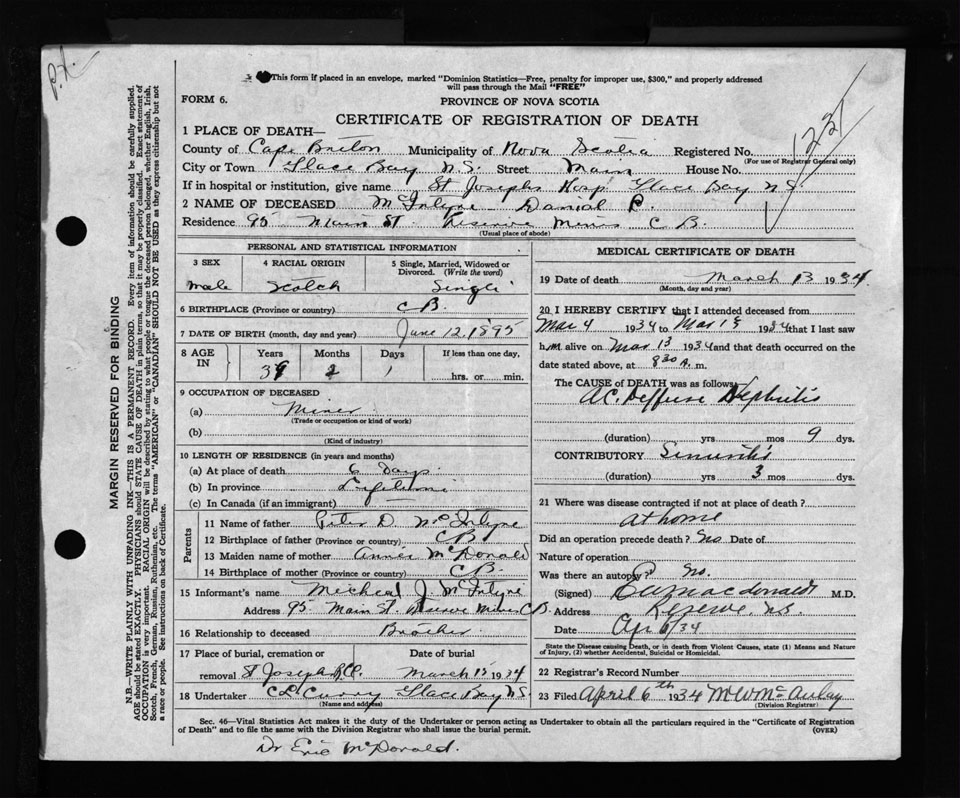 P.X.
This form if placed in an envelope, marked "Dominion Statistics—Free, penalty for improper use, $300," and properly addressed
will pass through the Mail "FREE"
FORM 6.
PROVINCE OF NOVA SCOTIA
CERTIFICATE OF REGISTRATION OF DEATH
1 PLACE OF DEATH—
County of Cape Breton Municipality of Nova Scotia Registered No.
(For use of Registrar General only)
City or Town Glace Bay N.S. Street Main House No.
If in hospital or institution, give name St Josephs Hosp Glace Bay N.S.
2 NAME OF DECEASED McIntyre Danial P.
Residence 95 Main St Reserve Mines C B.
(Usual place of abode)
PERSONAL AND STATISTICAL INFORMATION
3 SEX 4 RACIAL ORIGIN 5 Single, Married, Widowed or Divorced. (Write the word)
male Scotch Single
6 BIRTHPLACE (Province or country) C B.
7 DATE OF BIRTH (month, day and year) June 12, 1895
8 AGE IN Years Months Days If less than one day,
1 hrs. or min.
9 OCCUPATION OF DECEASED
(a) Miner
(Trade or occupation or kind of work)
(b)
(Kind of industry)
10 LENGTH OF RESIDENCE (in years and months)
(a) At place of death 6 Days
(b) In province Lifetime
(c) In Canada (if an immigrant)
Parents
11 Name of father Peter D McIntyre
12 Birthplace of father (Province or country) C B
13 Maiden name of mother Annie McDonald
14 Birthplace of mother (Province or country) C B
15 Informant's name Micheal J. McIntyre
Address 95 Main St. Reserve Mines C.B.
16 Relationship to deceased Brother
17 Place of burial, cremation or removal Date of burial
St Josephs R.C. March 15 1934
18 Undertaker C.P. Curry Glace Bay N S
(Name and address)
MEDICAL CERTIFICATE OF DEATH
19 Date of death March 13 1934
(Month, day and year)
20 I HEREBY CERTIFY that I attended deceased from
Mar 4 1934 to Mar 13 1934 that I last saw
him alive on Mar 13 1934 and that death occurred on the
date stated above, at 8 30 A. m.
The CAUSE OF DEATH was as follows
Ac. Deffuse Nephritis
(duration) yrs mos 9 dys.
CONTRIBUTORY Sinusitis
(duration) yrs 3 mos dys.
21 Where was disease contracted if not at place of death?
at home
Did an operation precede death? No Date of
Nature of operation
Was there an autopsy? No.
(Signed) Macdonald M.D.
Address Reserve, N.S.
Date Apr 6/34
State the Disease causing Death, or in death from Violent Causes, state (1) Means and Nature of Injury, (2) whether Accidental, Suicidal or Homicidal.
22 Registrar's Record Number
23 Filed April 6th 1934 M W McAulay
(Division Registrar)
Sec. 46—Vital Statistics Act makes it the duty of the Undertaker or person acting as Undertaker to obtain all the particulars required in the "Certificate of Registration
of Death" and to file the same with the Division Registrar who shall issue the burial permit.
(OVER)
Dr Eric McDonald.
MARGIN RESERVED FOR BINDING
N.B.—WRITE PLAINLY WITH UNFADING INK—THIS IS A PERMANENT RECORD. Every item of information should be carefully supplied.
AGE should be stated EXACTLY. PHYSICIANS should STATE CAUSE OF DEATH in plain terms, so that it may be properly classified. Exact statement of
OCCUPATION is very important. RACIAL ORIGIN will be described by stating to what people or tongue the deceased person belonged, whether English, Irish,
Scotch, French, German, Russian, Ruthenian, etc. The terms "AMERICAN" or "CANADIAN" SHOULD NOT BE USED as they express citizenship but not
a race or people. See instructions on back of Certificate.